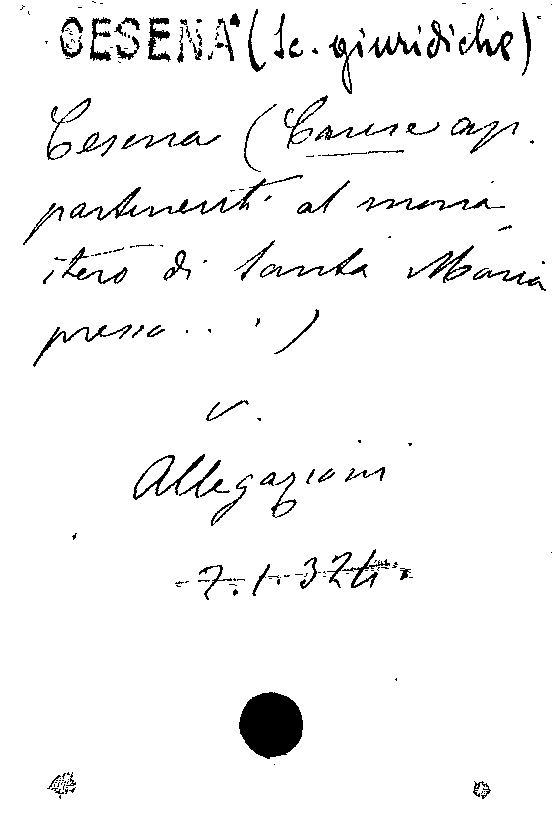 CESENA (Sc. giuridiche)
Cesena (Cause ap.
partenenti al mona
stero di Santa Maria
presso ....)
v.
Allegazioni
7.1.324.